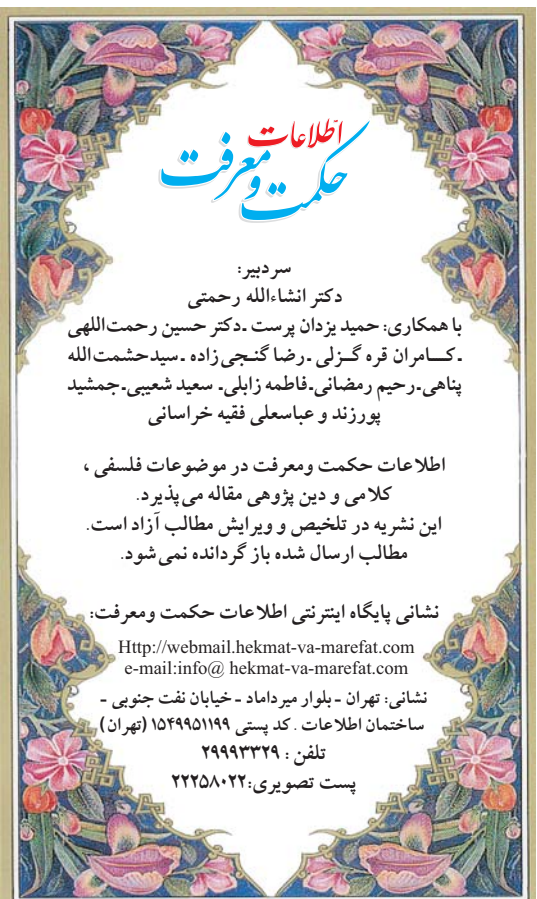 اطلاعات
حکمت و معرفت
سردبیر:
دکتر انشاءالله رحمتی
با همکاری: حمید یزدان پرست ـدکتر حسین رحمت‌اللهی
ـکـــامران قره گـــزلی ـ رضا گنـجی زاده ـ سیدحشمت‌الله
پناهی‌ـرحیم رمضانی‌ـفاطمه زابلی‌ـ سعید شعیبی‌ـجمشید
پورزند و عباسعلی فقیه خراسانی
اطلاعات حکمت ومعرفت در موضوعات فلسفی ،
کلامی و دین پژوهی مقاله می‌پذیرد.
این نشریه در تلخیص و ویرایش مطالب آزاد است.
مطالب ارسال شده باز گردانده نمی‌شود.
نشانی پایگاه اینترنتی اطلاعات حکمت ومعرفت:
Http://webmail.hekmat-va-marefat.com
e-mail:info@ hekmat-va-marefat.com
نشانی: تهران ـ بلوار میرداماد ـ خیابان نفت جنوبی ـ
ساختمان اطلاعات . کد پستی ۱۵۴۹۹۵۱۱۹۹ (تهران)
تلفن : ۲۹۹۹۳۳۲۹
پست تصویری:۲۲۲۵۸۰۲۲